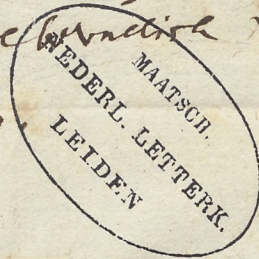 MAATSCH.
NEDERL. LETTERK.
LEIDEN